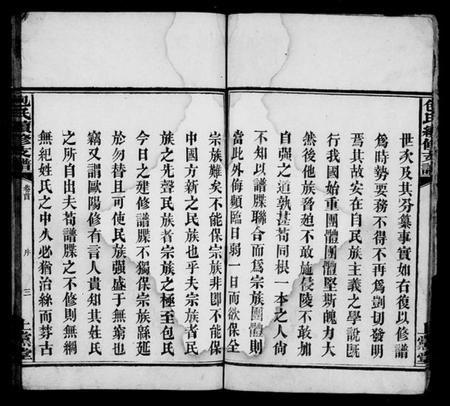 包氏續修支譜
世次及其分葬事實如右復以修譜
爲時勢要務不得不再爲剴切發明
焉其故安在自民族主義之學說旣
行我國始重團體團體堅斯魄力大
然後他族脅迫不敢施侵陵不敢加
自强之道孰甚苟同根一本之人尙
不知以譜牒聯合而爲宗族團體則
當此外侮頻臨日弱一日而欲保全
宗族難矣不能保宗族非即不能保
中國方新之民族也乎夫宗族者民
族之先聲民族者宗族之極至包氏
今日之建修譜牒不獨保宗族緜延
於勿替且可使民族强盛于無窮也
竊又謂歐陽修有言人貴知其姓氏
之所自出夫苟譜牒之不修則無綱
無紀姓氏之中久必猶治絲而棼古
包氏續修支譜
卷首
序
三
上黨堂